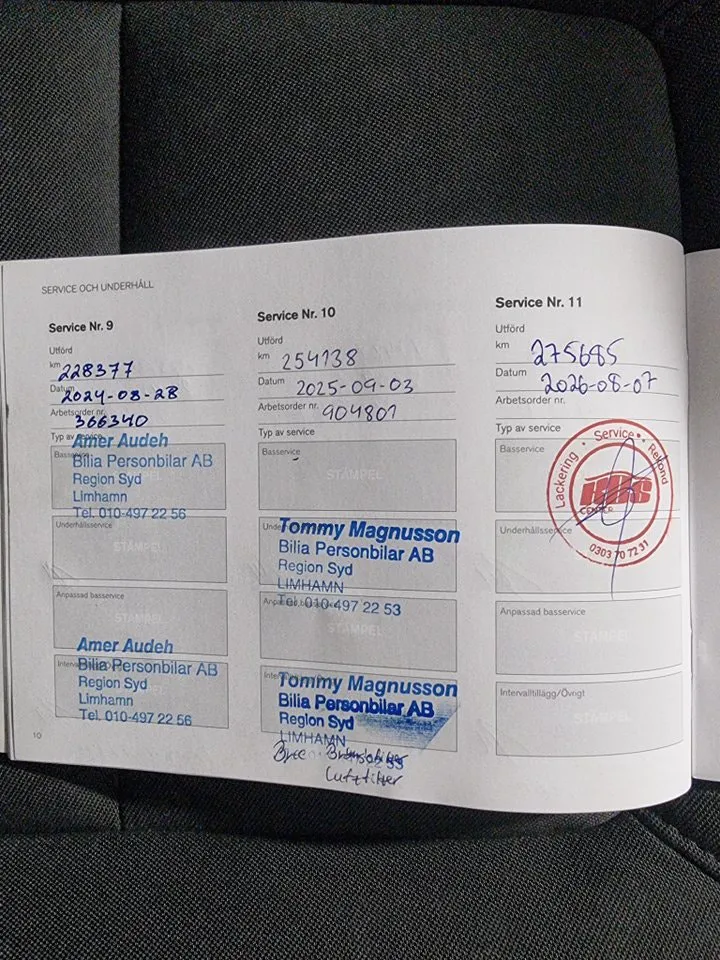 SERVICE OCH UNDERHÅLL
Service Nr. 9
Utförd
km 228377
Datum 2024-08-28
Arbetsorder nr. 366340
Typ av service
Amer Audeh
Bilia Personbilar AB
Region Syd
Limhamn
Tel. 010-497 22 56
Underhållsservice
STÄMPEL
Anpassad basservice
STÄMPEL
Amer Audeh
Bilia Personbilar AB
Region Syd
Limhamn
Tel. 010-497 22 56
10
Service Nr. 10
Utförd
km 254138
Datum 2025-09-03
Arbetsorder nr. 904801
Typ av service
Basservice
STÄMPEL
Tommy Magnusson
Bilia Personbilar AB
Region Syd
LIMHAMN
Tel. 010-497 22 53
STÄMPEL
Tommy Magnusson
Bilia Personbilar AB
Region Syd
LIMHAMN
Luftfilter
Service Nr. 11
Utförd
km 275685
Datum 2026-08-07
Arbetsorder nr.
Typ av service
Basservice
Lackering • Service • Rekond
CENTER
0303 70 72 31
Underhållsservice
Anpassad basservice
STÄMPEL
Intervalltillägg/Övrigt
STÄMPEL